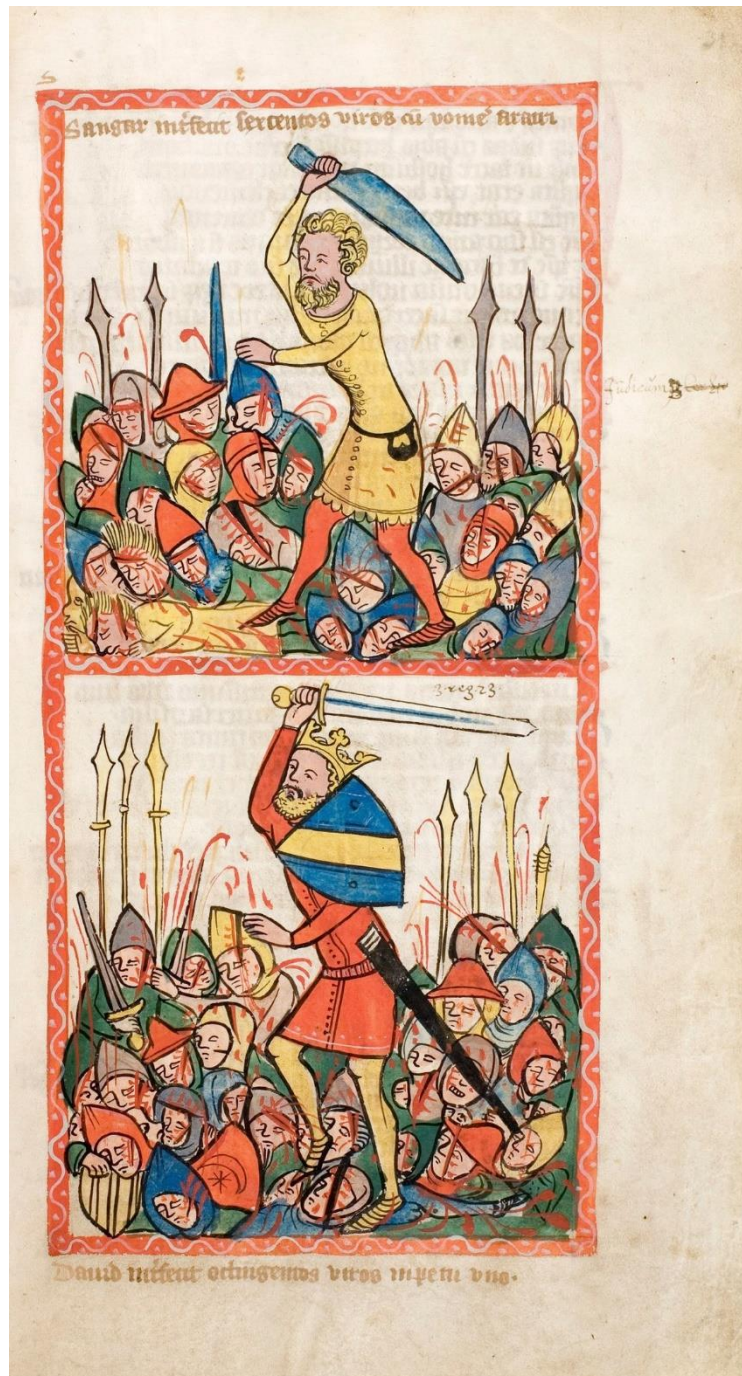 Sangar int̄fecit sexcentos viros cū vome᷑ aratri
Judicum 3
2 regꝝ 23
Dauid int̄fecit octingentos viros inpetu vno.